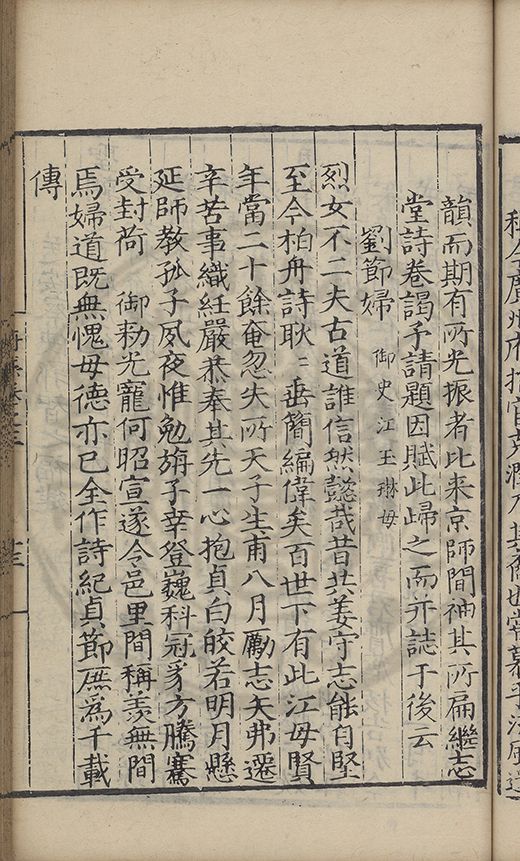 韻而期有所光振者比来京師間袖其所扁繼志
堂詩卷謁予請題因賦此歸之而并誌于後云
劉節婦 御史江玉琳母
烈女不二夫古道誰信然懿哉昔共姜守志能自堅
至今柏舟詩耿〻垂簡編偉矣百世下有此江母賢
年當二十餘奄忽失所天子生甫八月勵志矢弗遷
辛苦事織紝嚴恭奉其先一心抱貞白皎若明月懸
延師教孤子夙夜惟勉旃子幸登巍科冠豸方騰騫
受封荷 御勑光寵何昭宣遂令邑里間稱羡無間
焉婦道既無愧母德亦已全作詩紀貞節庶為千載
傳